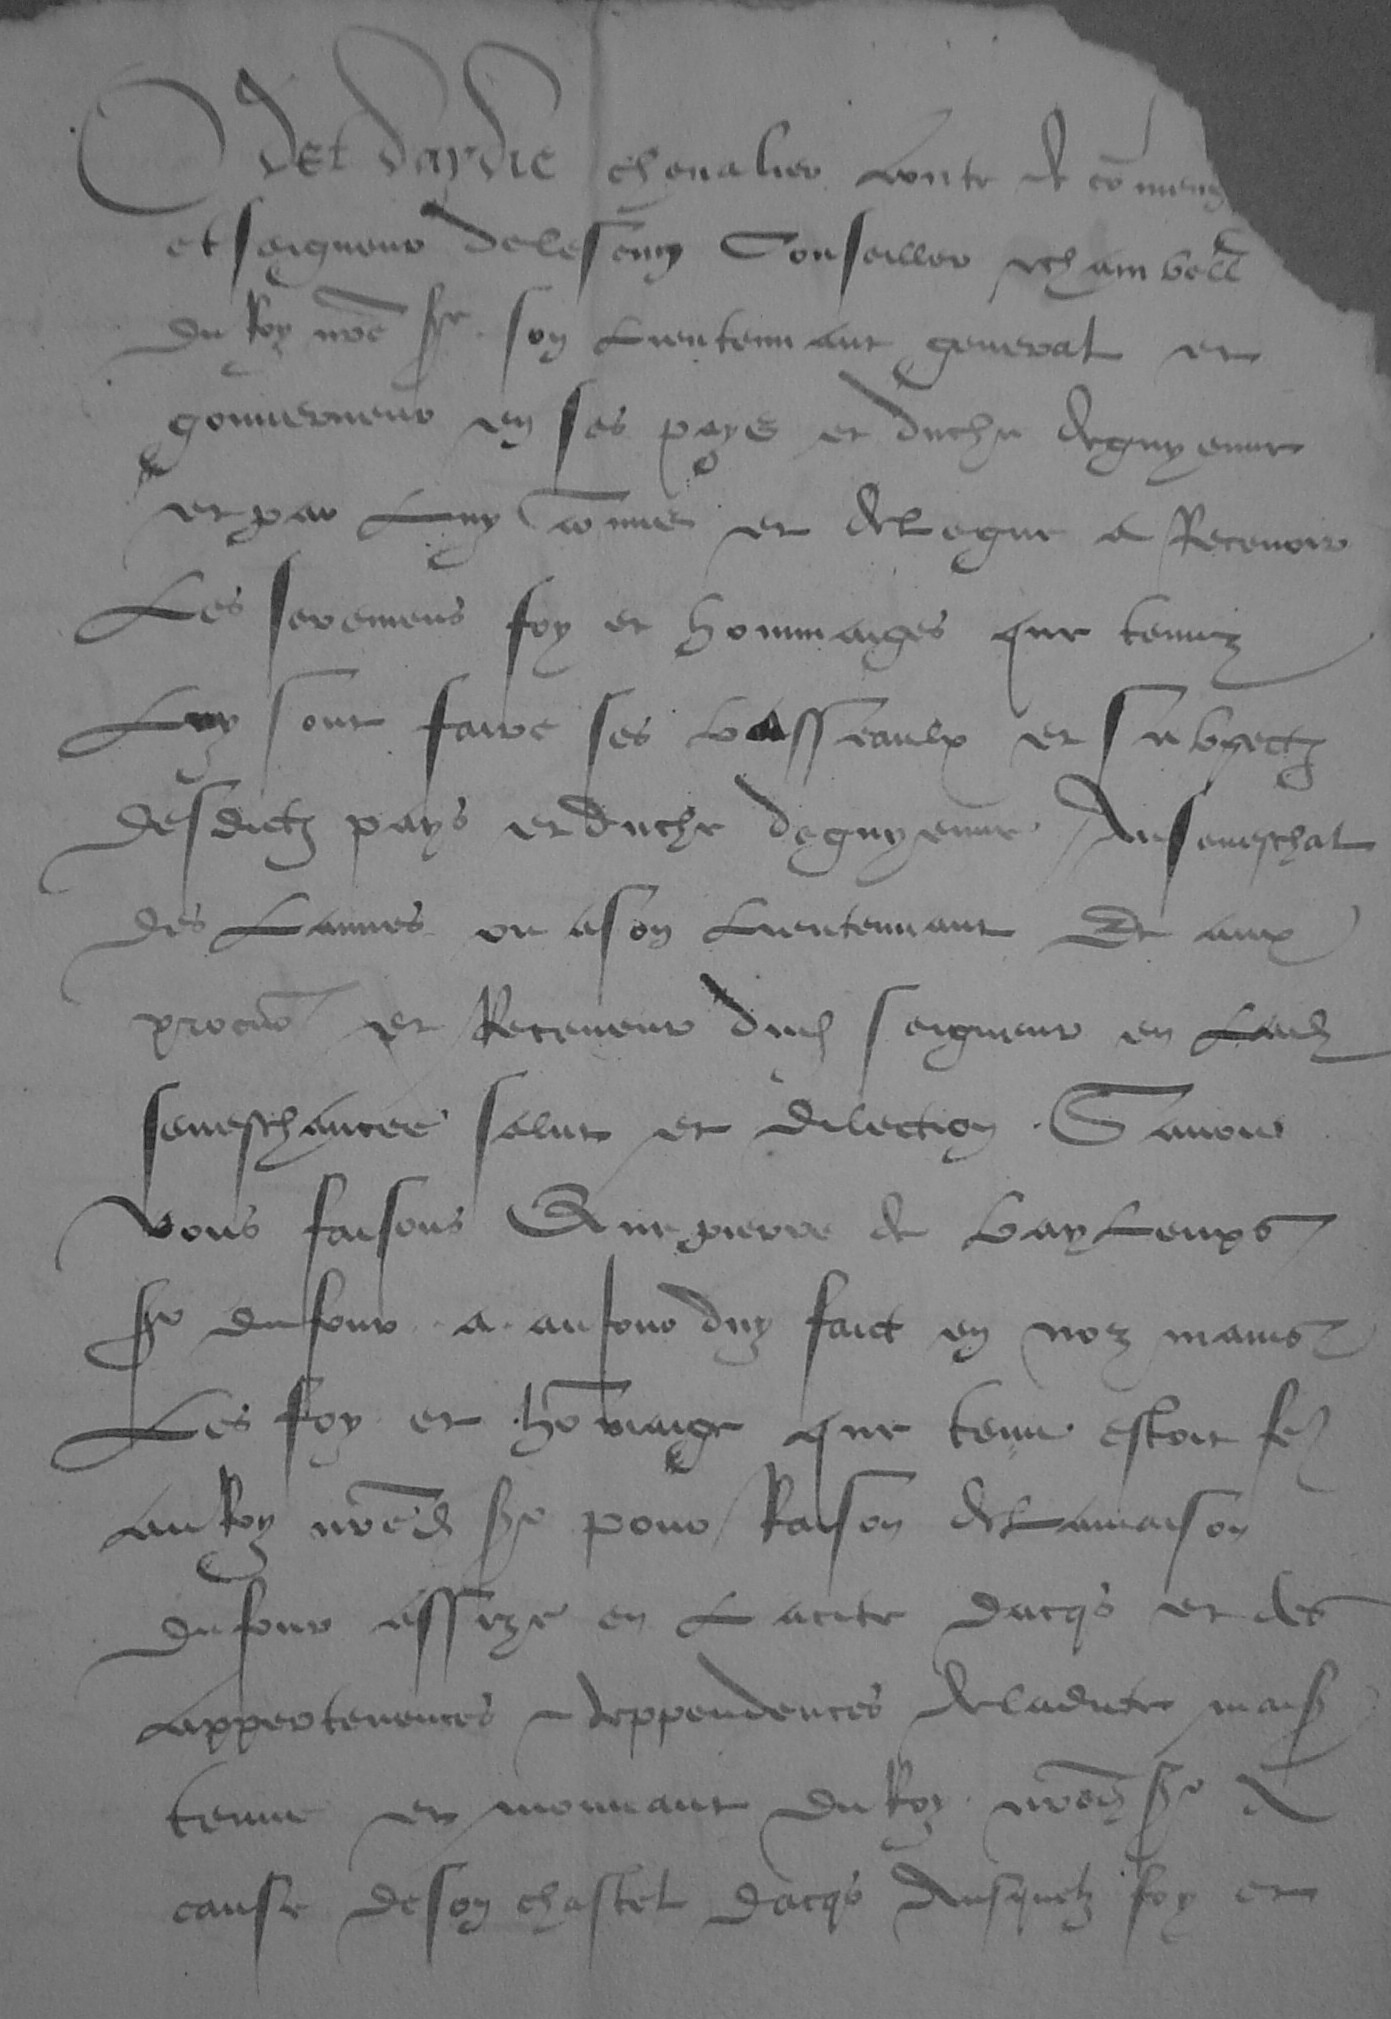 Odet Daydie chevalier conte de co͞menge
et seigneur de lescun Conseiller et chambell
du Roy n͞re sr son Lieutennant general et
gouverneur en ses pays et duche de guyenne
et par Luy co͞mis et delegue a Recevoir
Les seremens foy et hommaiges que tenuz
Luy sont faire ses vasseaulx et subgectz
desdictz pays et duche de guyenne Au seneschal
des Lannes ou a son Lieutennant Et aux
procur͞ et Receveur dud seigneur en Lad
seneschaucee salut et dilection Savoir
vous faisons Que pierre de bayLenxs
sr du four a auJourduy faict en noz mains
Les foy et ho͞maige que tenu estoit fe
au Roy n͞red sr pour Raison de La maison
du four assize en La cite dacqs et des
appertenences et deppendences de ladicte mais
tenue et mouvant du Roy n͞red sr A
cause de son chastel dacqs Ausquelz foy et